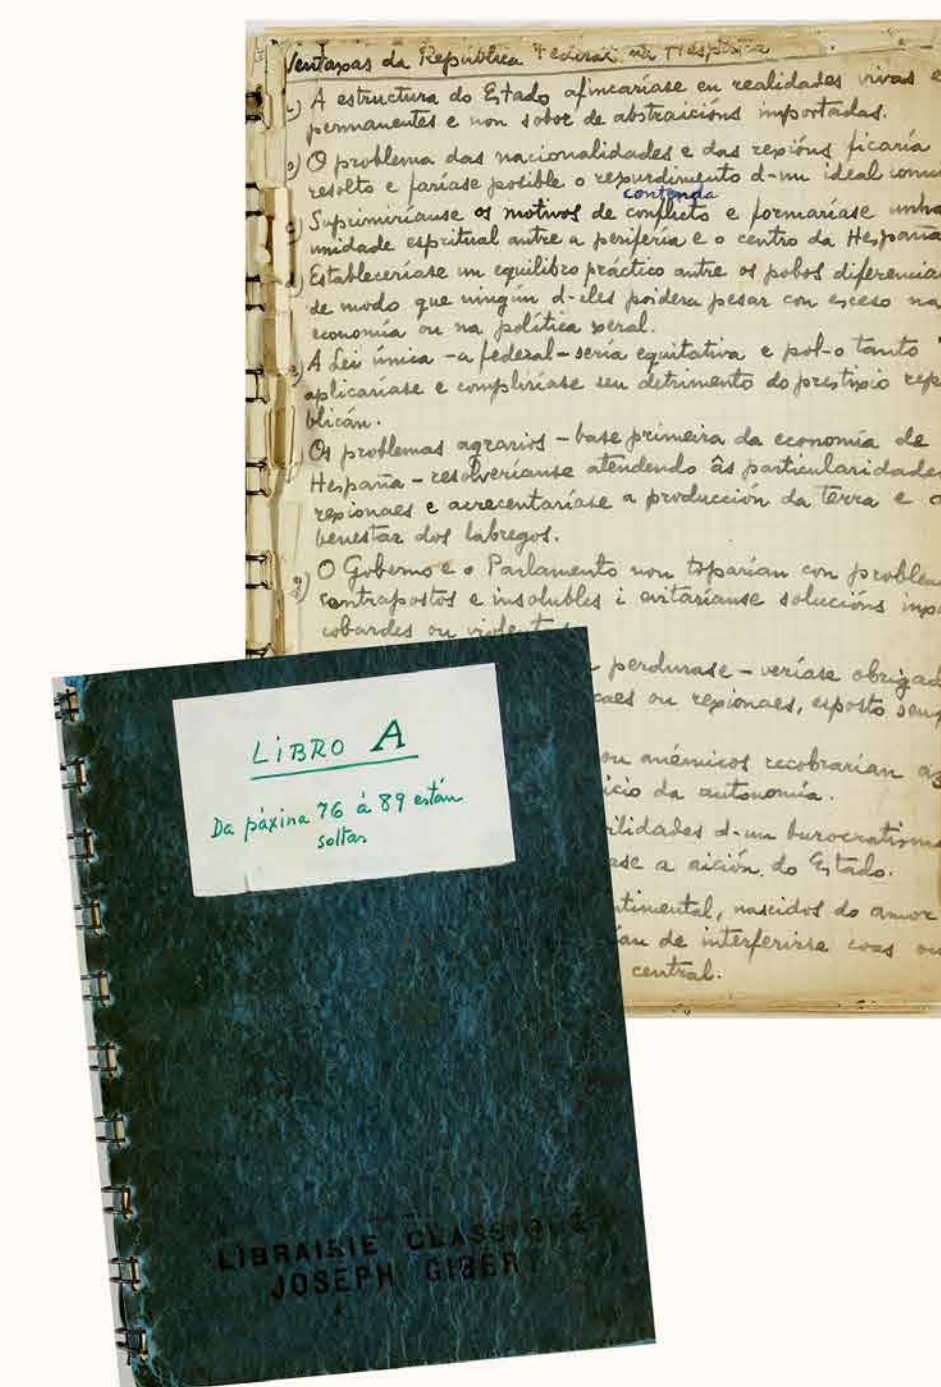 Ventaxas da República Federal na Hespaña
A estructura do Estado afincaríase en realidades vivas e
permanentes e non sobor de abstraicións importadas.
O problema das nacionalidades e das rexións ficaría
resolto e faríase posible o rexurdimento d-un ideal comun
contenda
Suprimiríanse os motivos de conflicto e formaríase unha
unidade espritual antre a periferia e o centro da Hespaña
d) Estableceríase un equilibro práctico antre os pobos diferencia
de modo que ningún d-eles poidera pesar con exceso na
economía ou na política xeral.
A Lei única -a federal- sería equitativa e pol-o tanto
aplicaríase e compliríase sen detrimento do prestixio repu
blicán.
Os problemas agrarios - base primeira da economía de
Hespaña - resolveríanse atendendo âs particularidades
rexionaes e acrecentaríase a producción da terra e o
benestar dos labregos.
g) O Goberno e o Parlamento non toparían con problem
contrapostos e insolubles i evitaríanse solucións
cobardes ou
perdurase - veríase obrigad
caes ou rexionaes, esposto
ou anémicos recobrarían
icio da autonomía.
ilidades d-un burocratismo
ase a aición do Estado.
timental, nascidos do amor
ían de interferirse coas ou
central.
LIBRO A
Da páxina 76 á 89 están
soltas
LIBRAIRIE CLASSIQUE
JOSEPH GIBERT